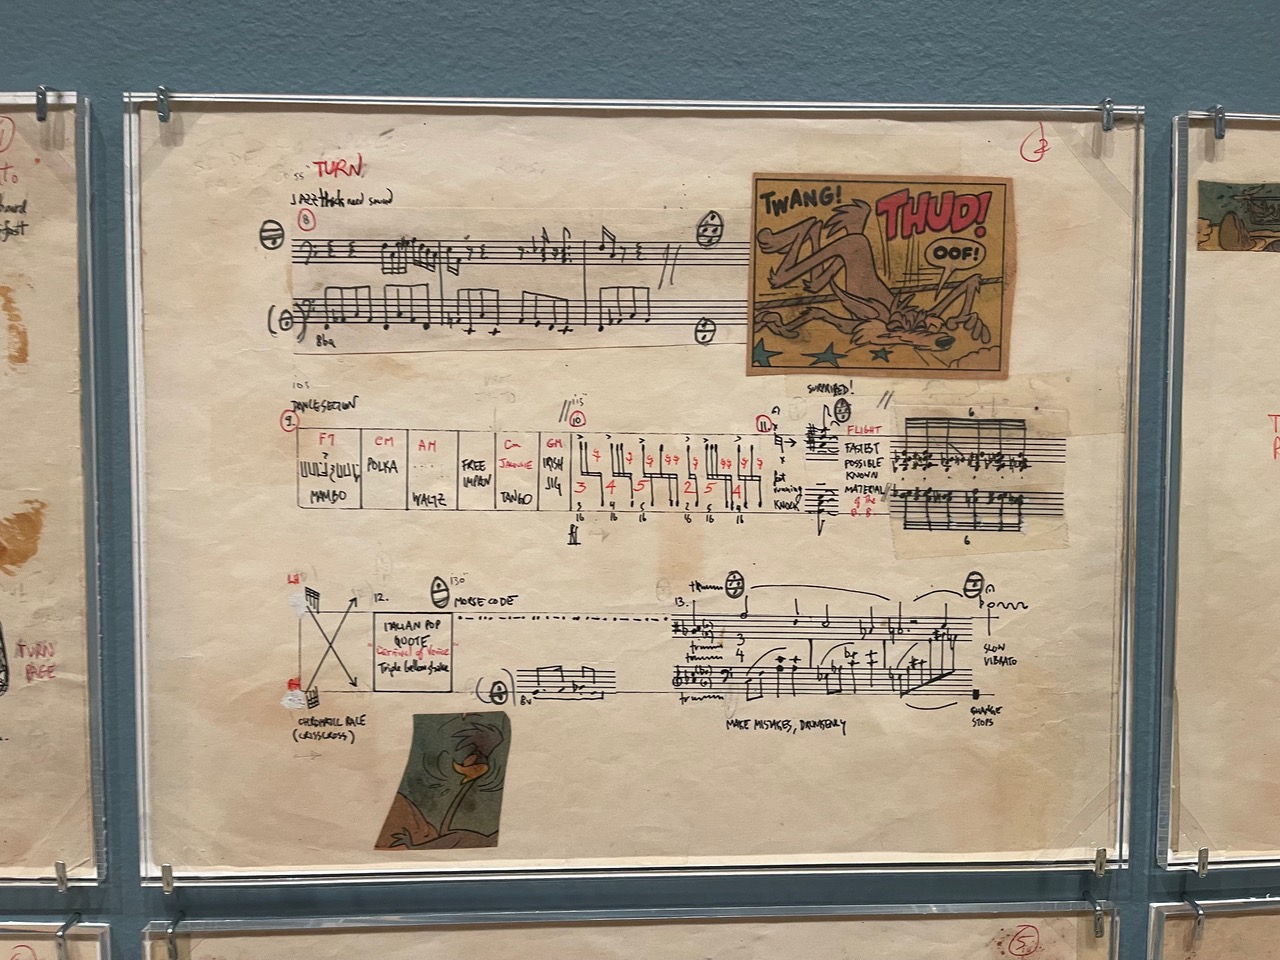 TURN
2
JAZZ thick reed sound
8
8ba
TWANG!
THUD!
OOF!
DANCE SECTION
9.
F7
MAMBO
CM
POLKA
AM
WALTZ
FREE
IMPROV
Cm
TANGO
GM
IRISH
JIG
115
10
3 4 5 2 5 4
16 16 16 16 16 16
11.
KNOCK
SURPRISED!
FLIGHT
FASTEST
POSSIBLE
KNOWN
MATERIAL
of the
B. B.
6
6
LH
RH
CHROMATIC RACE
(CRISSCROSS)
12.
ITALIAN POP
QUOTE
"Carnival of Venice"
Triple bellowshake
130
MORSE CODE
8v
13.
3
4
MAKE MISTAKES, DRUNKENLY
SLOW
VIBRATO
CHANGE
STOPS
TURN
PAGE
5